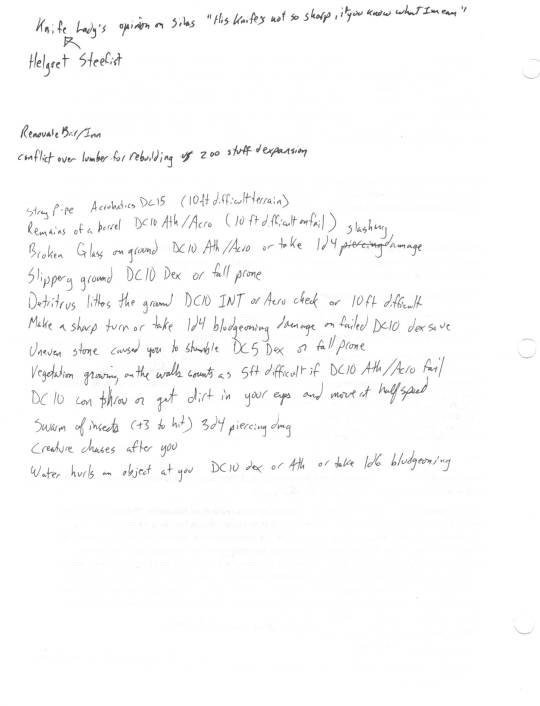 Knife Lady's opinion on Silas "His Knife's not so sharp, if you know what I mean"
Helgret Steefist
Renovate Bar/Inn
conflict over lumber for rebuilding vs zoo stuff & expansion
Stray Pipe Acrobatics DC15 (10ft difficult terrain)
Remains of a barrel DC10 Ath/Acro (10 ft difficult on fail)
slashing
Broken Glass on ground DC10 Ath/Acro or take 1d4 piercing damage
Slippery ground DC10 Dex or fall prone
Detritrus litters the ground DC10 INT or Acro check or 10ft difficult
Make a sharp turn or take 1d4 bludgeoning damage on failed DC10 dex save
Uneven stone caused you to stumble DC5 Dex or fall prone
Vegetation growing on the walls counts as 5ft difficult if DC10 Ath/Acro fail
DC10 con throw or get dirt in your eyes and move at half speed
Swarm of insects (+3 to hit) 3d4 piercing dmg
Creature chases after you
Water hurls an object at you DC10 dex or Ath or take 1d6 bludgeoning